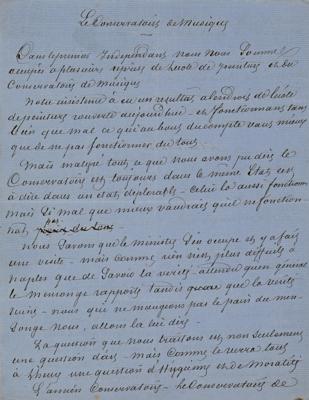 Le Conservatoire de Musique
Dans le premier Indépendant nous nous sommes
occupés à plusieurs reprises de l'école de peinture et du
Conservatoire de Musique
Notre insistance a eu un résultat, alors de l'école
de peinture rouverte aujourd'hui - et fonctionnant tant
bien que mal ce qui au bout du compte vaut mieux
que de ne pas fonctionner du tout.
Mais malgré tout ce que nous avons pu dire le
Conservatoire est toujours dans le même état c'est
à dire dans un état déplorable - celui là aussi fonctionne
mais si mal que mieux vaudrait qu'il ne fonction-
nât pas
Nous savons que le ministre s'en occupe et y a fait
une visite - mais comme rien n'est plus difficile à
Naples que de savoir la vérité - attendu qu'en général
le mensonge rapporte tandis que la vérité
ruine - nous que ne mangeons pas le pain du men-
songe nous, allons la lui dire -
La question que nous traitons est non seulement
une question d'art - mais comme le verra tous
à l'heure une question d'hygiène et de moralité
L'ancien Conservatoire - le Conservatoire de